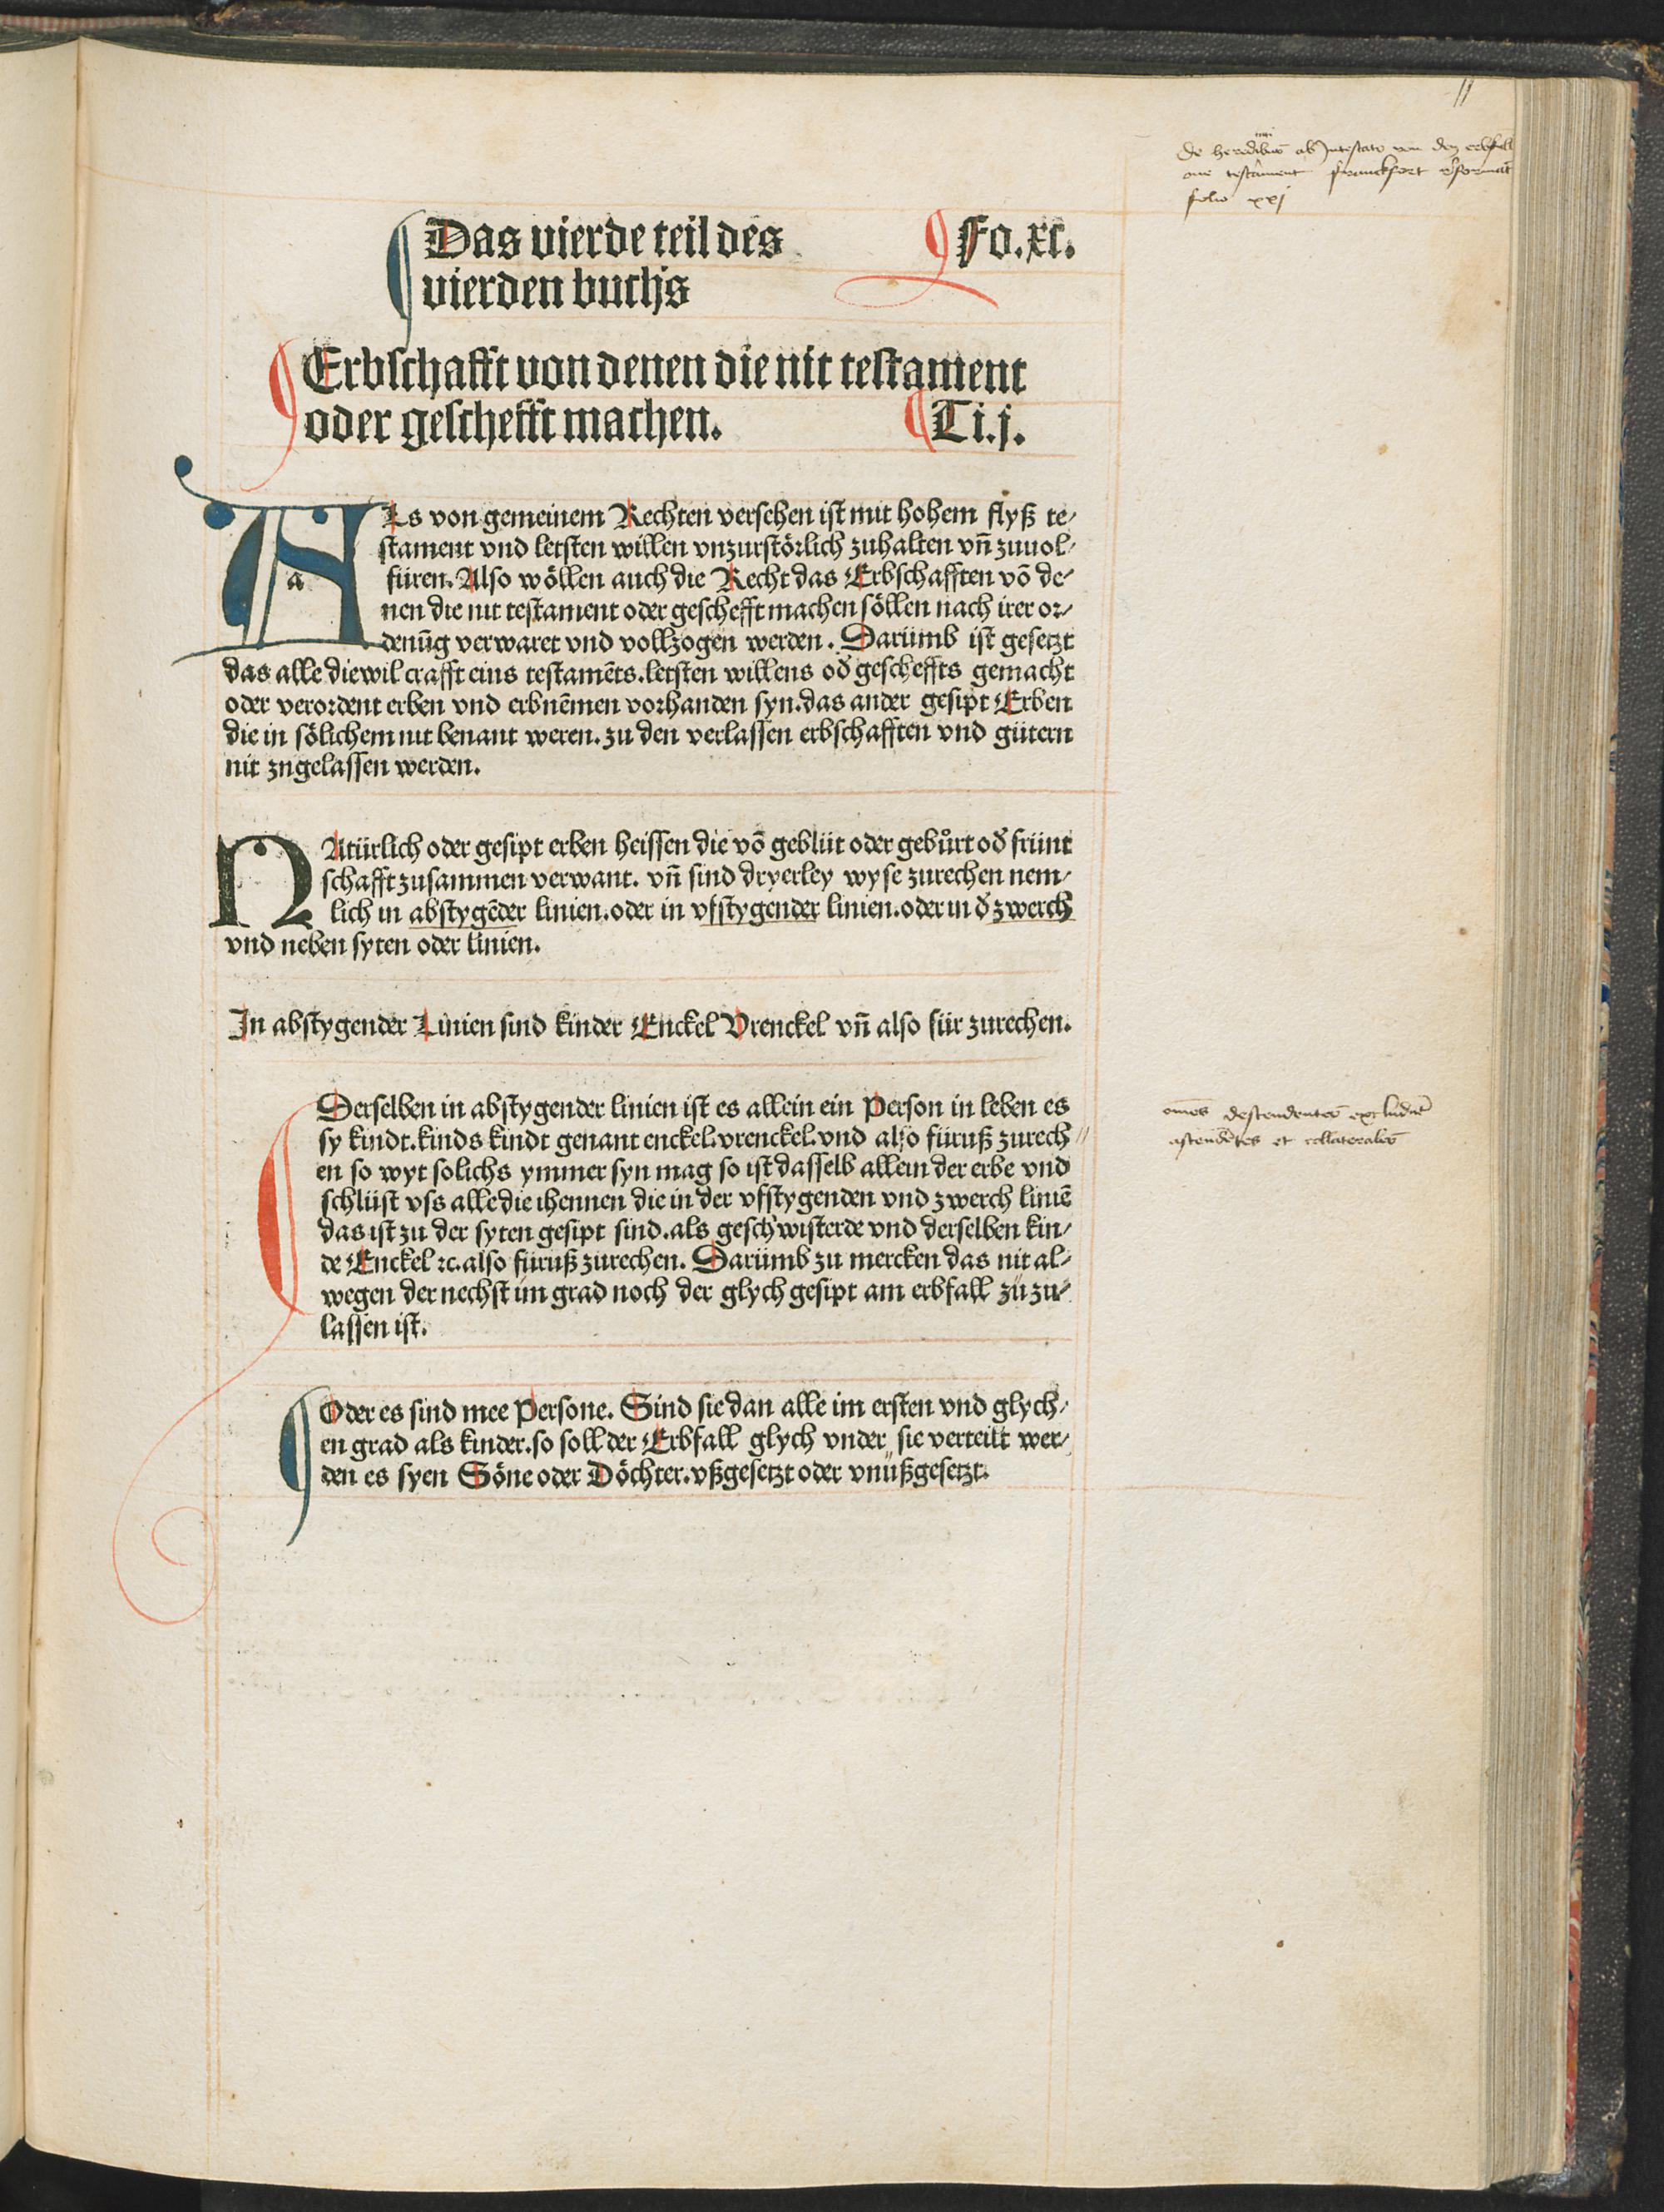 de heredibus ab Intestato von den erbfell
one testament franckfort reformat
folio xxj
Das vierde teil des Fo.xc.
vierden buchs
Erbschafft von denen die nit testament
oder geschefft machen. Ti.j.
Als von gemeinem Rechten versehen ist mit hohem flyß te⸗
stament vnd letsten willen vnzurstörlich zuhalten vn̄ zuuol⸗
füren. Also wöllen auch die Recht das Erbschafften vō de⸗
nen die nit testament oder geschefft machen söllen nach irer or⸗
denūg verwaret vnd vollzogen werden. Darümb ist gesetzt
das alle diewil crafft eins testamēts. letsten willens od̕ gescheffts gemacht
oder verordent erben vnd erbnēmen vorhanden syn. das ander gesipt Erben
die in sölichem nit benant weren. zu den verlassen erbschafften vnd gütern
nit zngelassen werden.
NAtürlich oder gesipt erben heissen die vō geblüt oder gebůrt od̕ frünt
schafft zusammen verwant. vn̄ sind dryerley wyse zurechen nem⸗
lich in abstygēder linien. oder in vfstygender linien. oder in d̕ zwerch
vnd neben syten oder linien.
In abstygender Linien sind kinder Enckel Vrenckel vn̄ also für zurechen.
Derselben in abstygender linien ist es allein ein Person in leben es
sy kindt. kinds kindt genant enckel. vrenckel. vnd also füruß zurech
en so wyt solichs ymmer syn mag so ist dasselb allein der erbe vnd
schlüst vss alle die ihennen die in der vfstygenden vnd zwerch liniē
das ist zu der syten gesipt sind. als geschwisterde vnd derselben kin⸗
de Enckel ꝛc. also füruß zurechen. Darümb zu mercken das nit al⸗
wegen der nechst im grad noch der glych gesipt am erbfall zü zu⸗
lassen ist.
omēs descendentes excludūt
ascendētes et collaterales
Oder es sind mee Persone. Sind sie dan alle im ersten vnd glych⸗
en grad als kinder. so soll der Erbfall glych vnder sie verteilt wer⸗
den es syen Söne oder Döchter. vßgesetzt oder vnüßgesetzt.